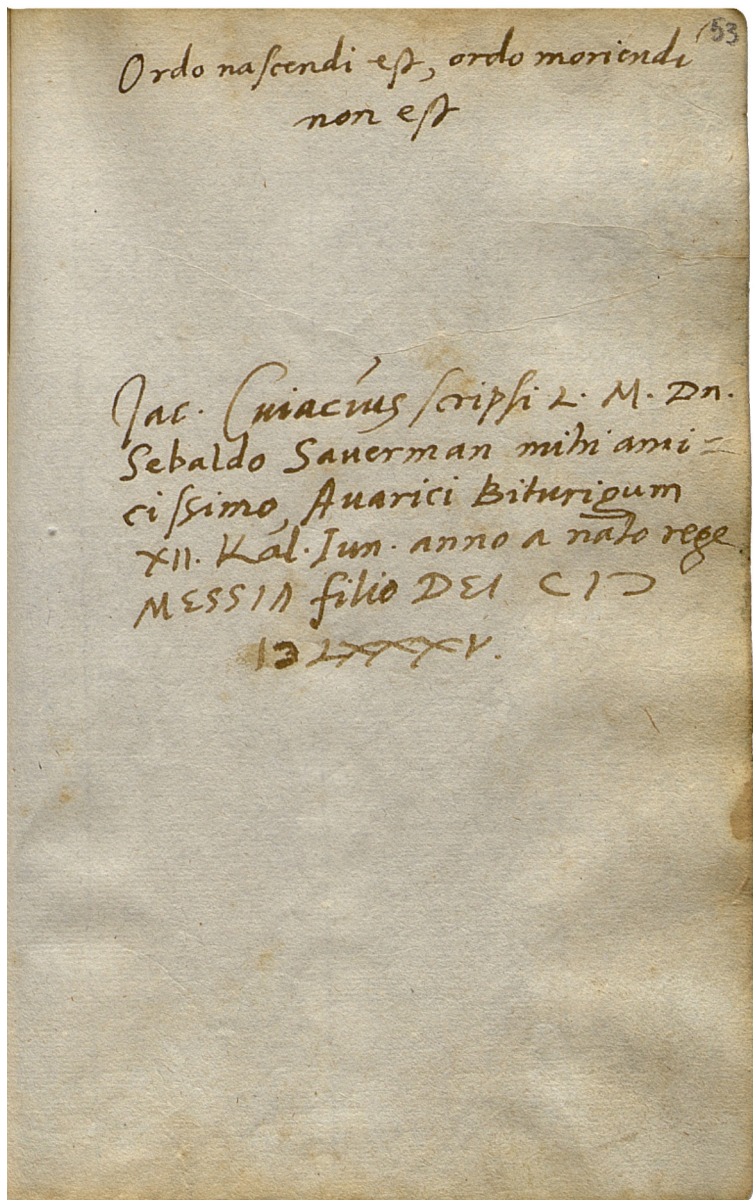 53
Ordo nascendi est, ordo moriendi
non est
Jac. Cuiacius scripsi L. M. Dn.
Sebaldo Sauerman mihi ami=
cissimo, Avarici Biturigum
XII. Kal. Iun. anno a nato rege
MESSIA filio DEI CIↃ
IↃ LXXXV.